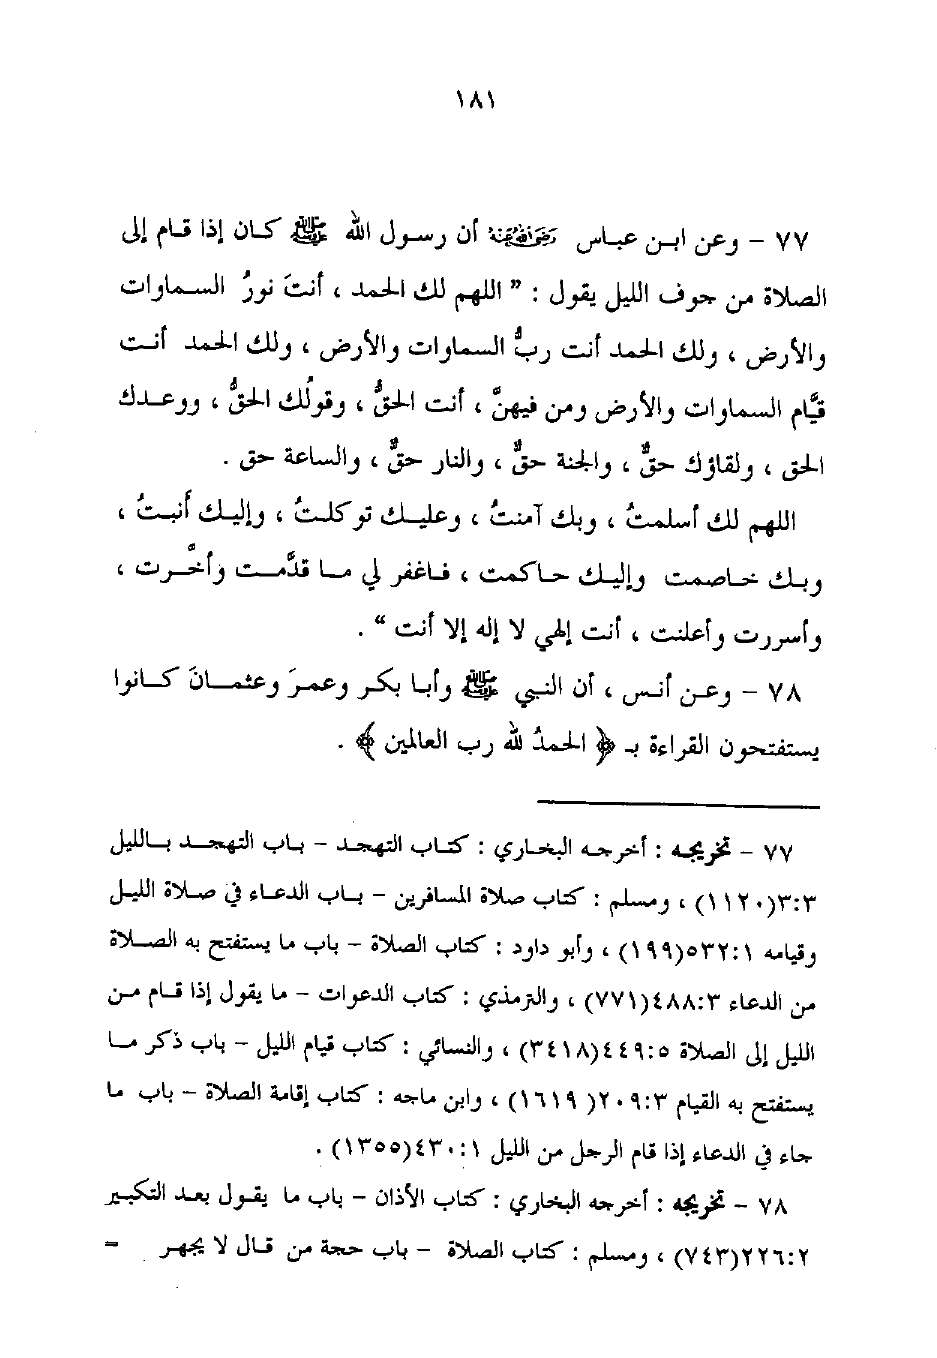 ١٨١
٧٧ – وعن ابن عباس رضي الله عنه أن رسول الله ﷺ كان إذا قام إلى
الصلاة من جوف الليل يقول : " اللهم لك الحمد ، أنتَ نورُ السماوات
والأرض ، ولك الحمد أنت ربُّ السماوات والأرض ، ولك الحمد أنت
قيَّام السماوات والأرض ومن فيهنَّ ، أنت الحقُّ ، وقولُك الحقُّ ، ووعدك
الحق ، ولقاؤك حقٌّ ، والجنة حقٌّ ، والنار حقٌّ ، والساعة حق .
اللهم لك أسلمتُ ، وبك آمنتُ ، وعليك توكلتُ ، وإليك أنبتُ ،
وبك خاصمت وإليك حاكمت ، فاغفر لي ما قدَّمت وأخَّرت ،
وأسررت وأعلنت ، أنت إلهي لا إله إلا أنت " .
٧٨ – وعن أنس ، أن النبي ﷺ وأبا بكر وعمرَ وعثمانَ كانوا
يستفتحون القراءة بـ ﴿ الحمدُ لله رب العالمين ﴾ .
٧٧ – تخريجه : أخرجه البخاري : كتاب التهجد – باب التهجد بالليل
٣:٣(١١٢٠) ، ومسلم : كتاب صلاة المسافرين – باب الدعاء في صلاة الليل
وقيامه ٥٣٢:١(١٩٩) ، وأبو داود : كتاب الصلاة – باب ما يستفتح به الصلاة
من الدعاء ٤٨٨:٣(٧٧١) ، والترمذي : كتاب الدعوات – ما يقول إذا قام من
الليل إلى الصلاة ٤٤٩:٥(٣٤١٨) ، والنسائي : كتاب قيام الليل – باب ذكر ما
يستفتح به القيام ٢٠٩:٣( ١٦١٩) ، وابن ماجه : كتاب إقامة الصلاة – باب ما
جاء في الدعاء إذا قام الرجل من الليل ٤٣٠:١(١٣٥٥) .
٧٨ – تخريجه : أخرجه البخاري : كتاب الأذان – باب ما يقول بعد التكبير
٢٢٦:٢(٧٤٣) ، ومسلم : كتاب الصلاة – باب حجة من قال لا يجهر =